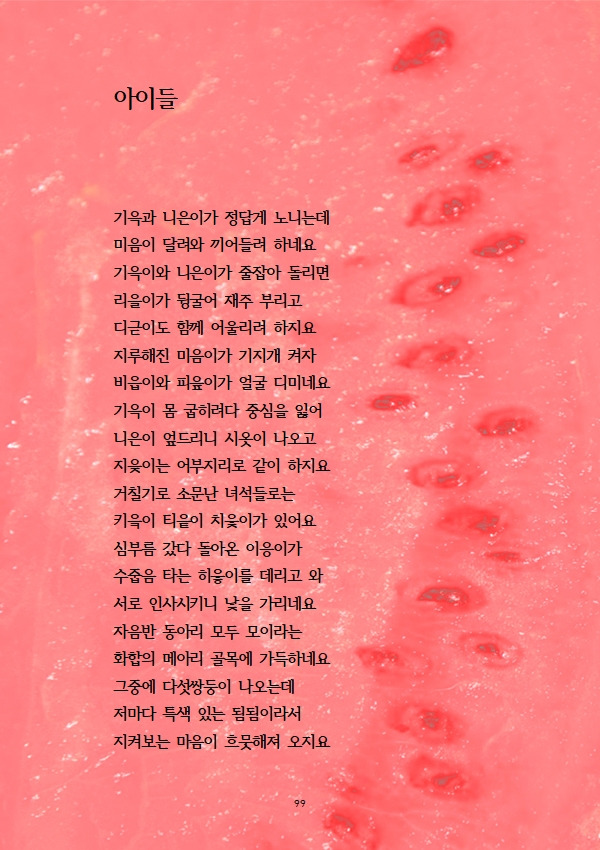 아이들
기윽과 니은이가 정답게 노니는데
미음이 달려와 끼어들려 하네요
기윽이와 니은이가 줄잡아 돌리면
리을이가 뒹굴어 재주 부리고
디귿이도 함께 어울리려 하지요
지루해진 미음이가 기지개 켜자
비읍이와 피읖이가 얼굴 디미네요
기윽이 몸 굽히려다 중심을 잃어
니은이 엎드리니 시옷이 나오고
지읒이는 어부지리로 같이 하지요
거칠기로 소문난 녀석들로는
키읔이 티읕이 치읓이가 있어요
심부름 갔다 돌아온 이응이가
수줍음 타는 히읗이를 데리고 와
서로 인사시키니 낯을 가리네요
자음반 동아리 모두 모이라는
화합의 메아리 골목에 가득하네요
그중에 다섯쌍둥이 나오는데
저마다 특색 있는 됨됨이라서
지켜보는 마음이 흐뭇해져 오지요
99